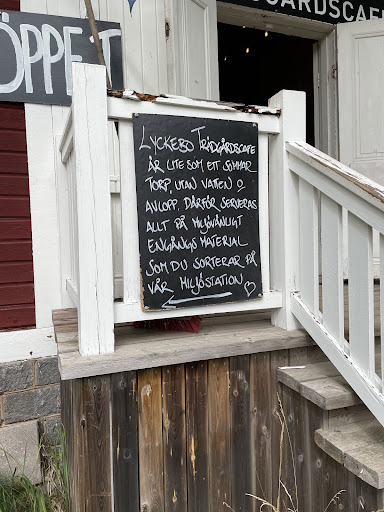 ÖPPET
GÅRDSCAFÉ
LYCKEBO TRÄDGÅRDSCAFE
ÄR LITE SOM ETT SOMMAR
TORP, UTAN VATTEN &
AVLOPP. DÄRFÖR SERVERAS
ALLT PÅ MILJÖVÄNLIGT
ENGÅNGS MATERIAL
SOM DU SORTERAR PÅ
VÅR MILJÖSTATION